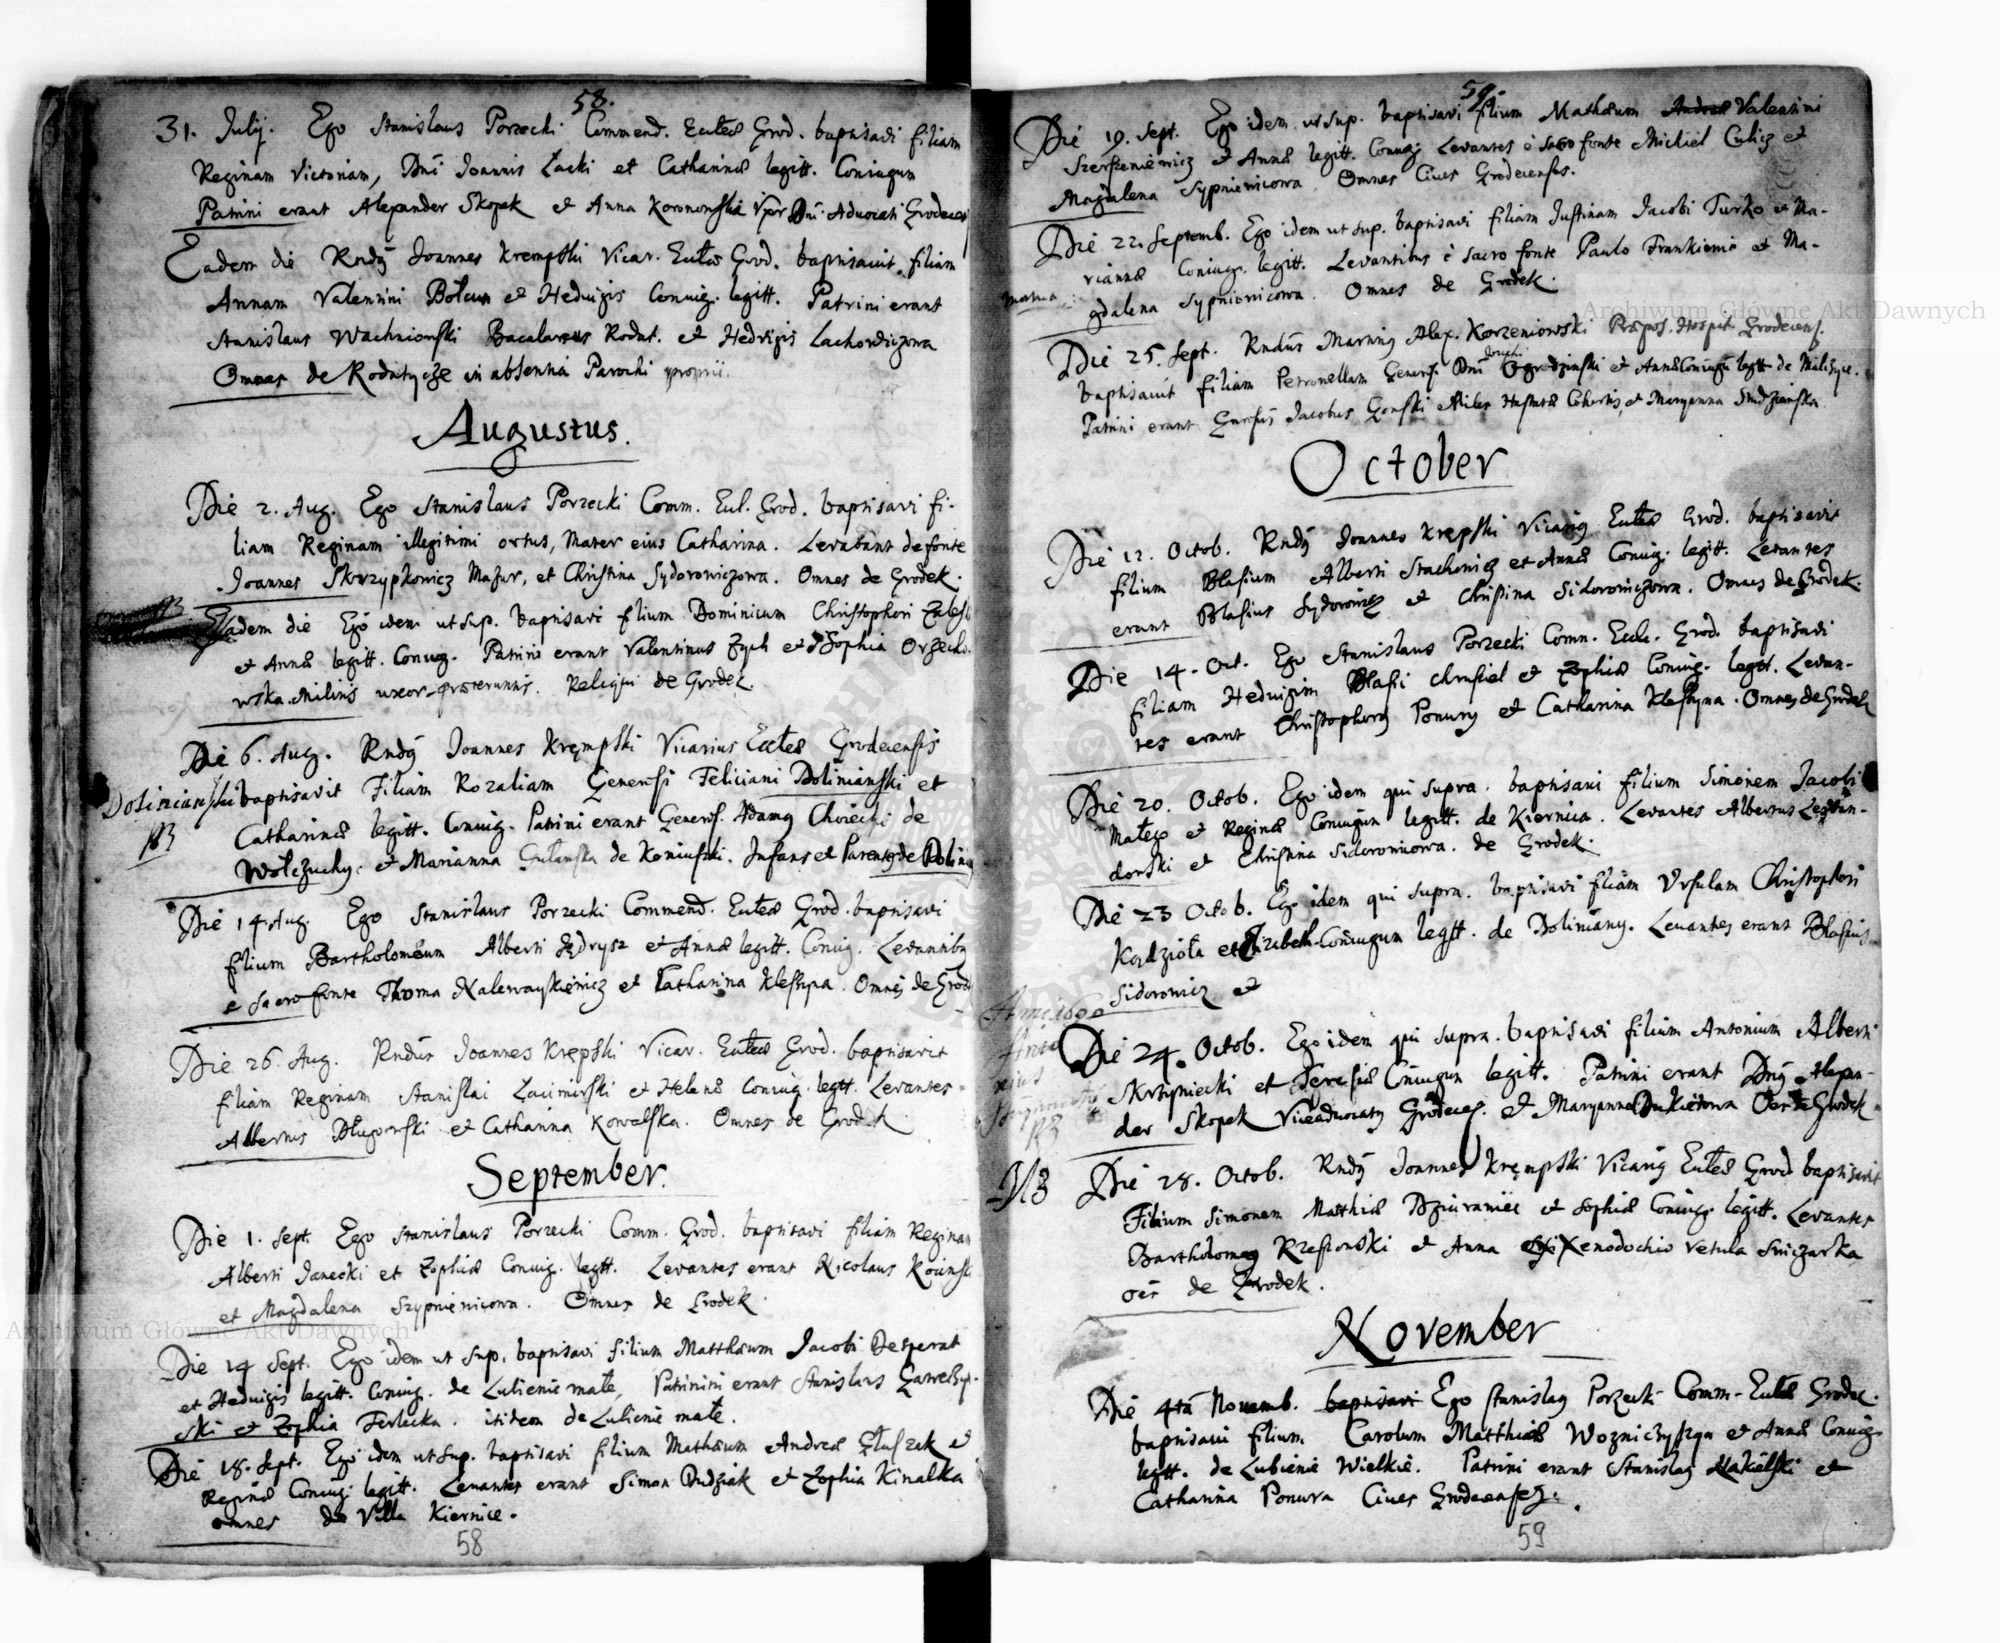 58.
31. Julij. Ego Stanislaus Porzecki Commend. Eccłae Grod. baptisavi filiam
Reginam Victoriam, Dni Joannis Łacki et Catharinae legitt. Coniugum
Patrini erant Alexander Skopek et Anna Korononska Vxor Dni Aduocati Grodecen
Eadem die Rndus Joannes Krempski Vicar. Eccłae Grod. baptisauit filiam
Annam Valentini et Hedvigis Coniug. legitt. Patrini erant
Stanislaus Wachniowski Bacalareus Rodat. et Hedvigis Lachowiczowa
Omnes de Rodatycze in absentia Parochi proprii.
Augustus.
Die 2. Aug. Ego Stanislaus Porzecki Comm. Eccl. Grod. baptisavi fi-
liam Reginam illegitimi ortus, Mater eius Catharina. Levabant de fonte
Joannes Skrzypkowicz Mazur, et Christina Sydorowiczowa. Omnes de Grodek.
Eadem die Ego idem ut sup. baptisavi filium Dominicum Christophori
et Annae legitt. Coniug. Patrini erant Valentinus Zych et Sophia Orzecho
wska Militis uxor. Reliqui de Grodek.
Die 6. Aug. Rndus Joannes Krempski Vicarius Eccłae Grodecensis
Dolinianski baptisavit Filiam Rozaliam Generosi Feliciani Dolinianski et
NB Catharinae legitt. Coniug. Patrini erant Generos. Adamus Choiecki de
Wołczuchy. et Marianna Gulanska de Koniuszki. Infans et Parentes de Dolin
Die 14 Aug. Ego Stanislaus Porzecki Commend. Eccłae Grod. baptisavi
filium Bartholomeum Alberti Jędrysz et Annae legitt. Coniug. Levantibus
e sacro fonte Thoma Nalewaykiewicz et Catharina Kleszypa. Omnes de Grod
Die 26 Aug. Rndus Joannes Krępski Vicar. Eccłae Grod. baptisavit
filiam Reginam Stanislai Lacimirski et Helenae Coniug. legitt. Levantes
Albertus Długowski et Catharina Kowalska. Omnes de Grodek
September.
Die 1. Sept. Ego Stanislaus Porzecki Comm. Grod. baptisavi filiam Reginam
Alberti Janecki et Zophiae Coniug. legitt. Levantes erant Nicolaus
et Magdalena Szypniewicowa. Omnes de Grodek.
Die 14 Sept. Ego idem ut sup. baptisavi filium Matthaeum Jacobi Desperat
et Hedvigis legitt. Coniug. de Lubienie małe, Patrinini erant Stanislaus
ski et Zophia Ferlecka. itidem de Lubienie małe.
Die 18. Sept. Ego idem ut sup. baptisavi filium Mathaeum Andreae Głuszak et
Reginae Coniug. legitt. Levantes erant Simon Dudziak et Zophia Kinalka
omnes de Villa Kiernice.
58
59.
Die 19. Sept. Ego idem ut sup. baptisavi filium Mathaeum Andreae Valentini
Szerszeniewicz et Annae legitt. Coniug. Levantes è sacro fonte Michael Culicz et
Magdalena Sypniewicowa. Omnes Ciues Grodecenses.
Die 22. Septemb. Ego idem ut sup. baptisavi filiam Justinam Jacobi Turko et Ma-
riannae Coniug. legitt. Levantibus è sacro fonte Paulo Frankiewic et Ma-
gdalena Sypniowicowa. Omnes de Grodek.
Die 25. Sept. Rndus Martinus Alex. Korzeniowski Praepos. Hospit. Grodecens.
baptisauit filiam Petronellam Generosi Dni Ogrodzinski et Annae Coniugu legitt de Malczyce.
Patrini erant Gnrosus Jacobus Gonski Miles Hastatae Cohortis, et Maryanna Studzianska
October
Die 12. Octob. Rndus Joannes Krępski Vicarius Eccłae Grod. baptisavit
filium Blasium Alberti Stachowicz et Annae Coniug. legitt. Levantes
erant Blasius Sydorowicz et Christina Sidorowiczowa. Omnes de Grodek.
Die 14. Oct. Ego Stanislaus Porzecki Comn. Eccle. Grod. baptisavi
filiam Hedvigim Blasii Chmiel et Zophiae Coniug. legitt. Levan-
tes erant Christophorus Ponury et Catharina Kleszyna. Omnes de Grodek
Die 20. Octob. Ego idem qui supra. baptisavi filium Simonem Jacobi
Małego et Reginae Coniugum legitt. de Kiernica. Levantes Albertus Lewan-
dowski et Christina Sidorowicowa. de Grodek.
Die 23 Octob. Ego idem qui supra. baptisavi filiam Vrsulam Christophori
Kądzioła et Elizabeth Coniugum legitt. de Doliniany. Levantes erant Blasius
Sidorowicz et
Die 24. Octob. Ego idem qui supra. baptisavi filium Antonium Alberti
Skrzyniecki et Teresiae Coniugum legitt. Patrini erant Dnus Alexan-
der Skopek Viceadvocatus Grodecens. et Maryanna Dukietowa Oes de Grodek.
NB Die 28. Octob. Rndus Joannes Krempski Vicarius Eccłae Grod baptisavit
Filium Simonem Matthiae Dziuraniec et Sophiae Coniug. legitt. Levantes
Bartholomaeus Rzeszowski et Anna Xenodochio Vetula Sniczarka
oēs de Grodek.
November
Die 4ta Novemb. baptisavi Ego Stanislaus Porzecki Comm. Eccłae Grodec.
baptisaui filium Carolum Matthiae Wozniczyszyn et Annae Coniug.
legitt. de Lubienie Wielkie. Patrini erant Stanislaus Nakielski et
Catharina Ponura Ciues Grodecenses.
59
Archiwum Główne Akt Dawnych
Archiwum Główne Akt Dawnych